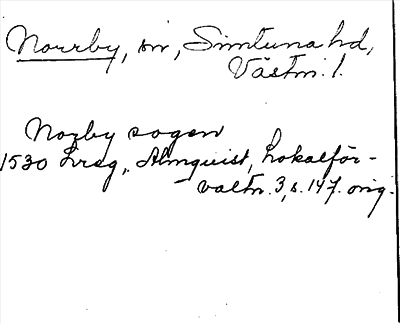 Norrby, sn, Simtuna hd,
Västm. l.
Norby sogen
1530 Lreg, Almquist, Lokalför-
valtn. 3, s. 147. orig.